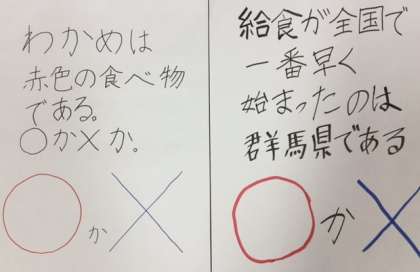 わかめは
赤色の食べ物
である。
○か×か。
○か×
給食が全国で
一番早く
始まったのは
群馬県である
○か×